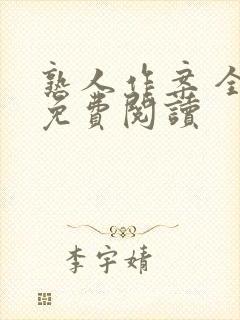 熟人作案全
免費閱讀
李宇婧